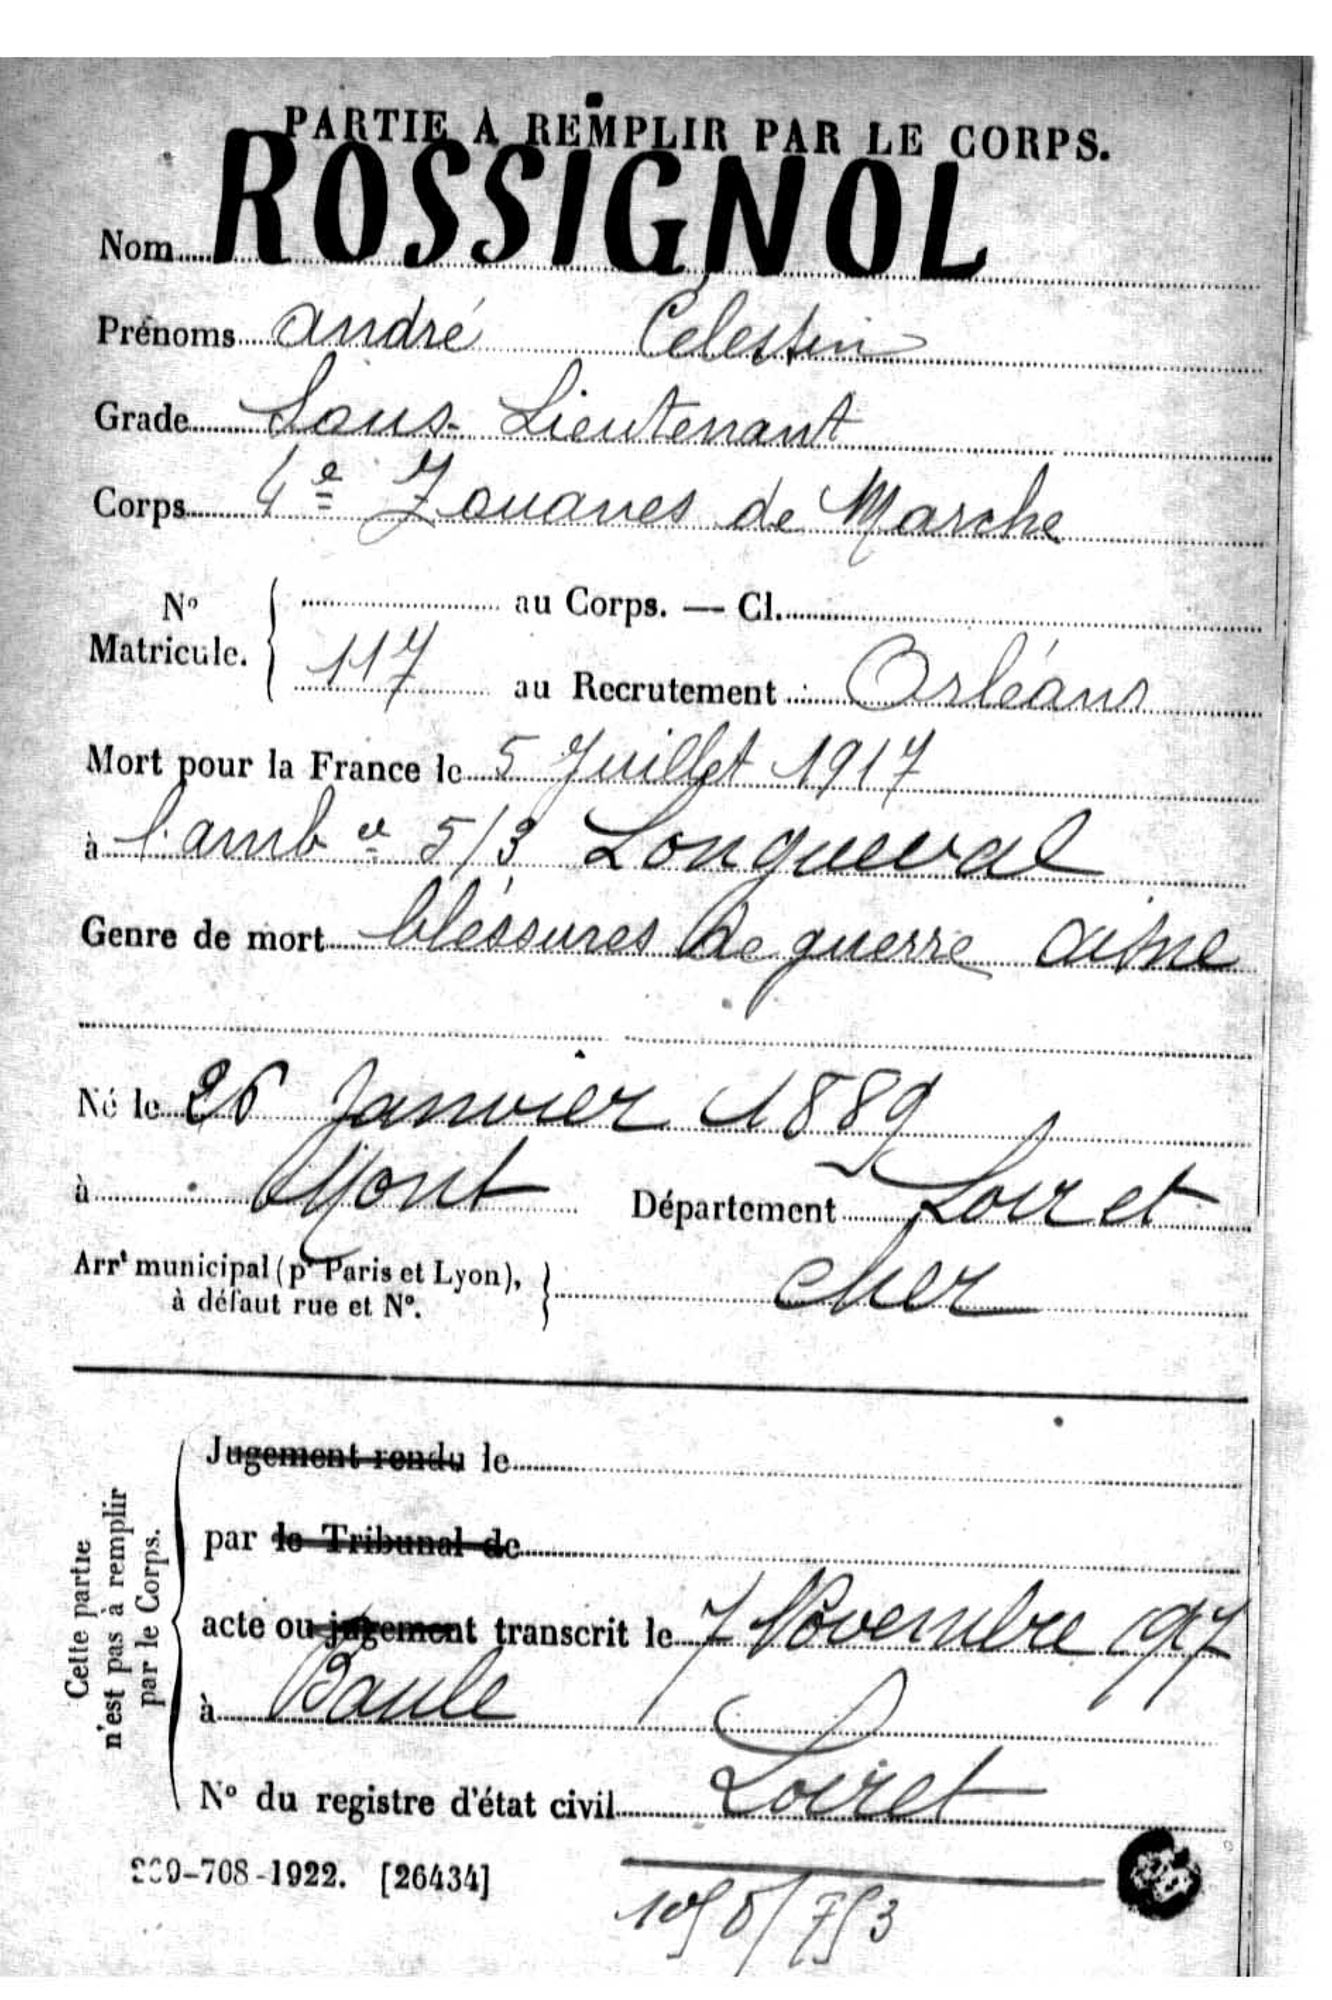 PARTIE À REMPLIR PAR LE CORPS.
Nom ROSSIGNOL
Prénoms André Celestin
Grade Sous-Lieutenant
Corps 4e Zouaves de Marche
No Matricule. { au Corps. — Cl.
117 au Recrutement Orléans
Mort pour la France le 5 Juillet 1917
à l'amb ce 5/3 Longueval
Genre de mort bléssures de guerre Aisne
Né le 26 Janvier 1889
à Mont Département Loir et
Arrt municipal (pr Paris et Lyon), à défaut rue et No. } Cher
Cette partie n'est pas à remplir par le Corps.
Jugement rendu le
par le Tribunal de
acte ou jugement transcrit le 7 Novembre 1917
à Baule
No du registre d'état civil Loiret
708-1922. [26434]